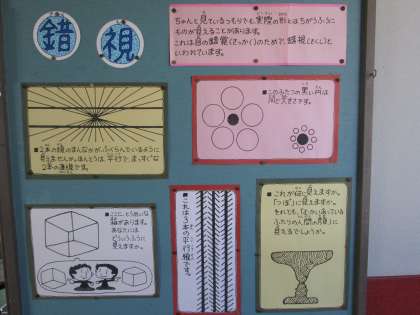 錯視
ちゃんと見ているつもりでも、実際の形とはちがうふうに
ものが見えることがあります。
これは目の錯覚(さっかく)のためで、錯視(さくし)と
いわれています。
■2本の線のまんなかが、ふくらんでいるように
見えませんか。ほんとうは、平行で、まっすぐな
2本の直線です。
■このふたつの黒い円は
同じ大きさです。
■ここに、とうめいな
箱があります。
あなたには
どういうふうに
見えますか。
■これは3本の平行線です。
■これが何に見えますか。
「つぼ」に見えますか。
それとも、「むかいあっている
ふたりの人間の顔」に
見えるでしょうか。